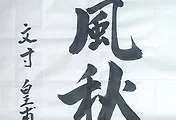 風秋
文寸 皇甫